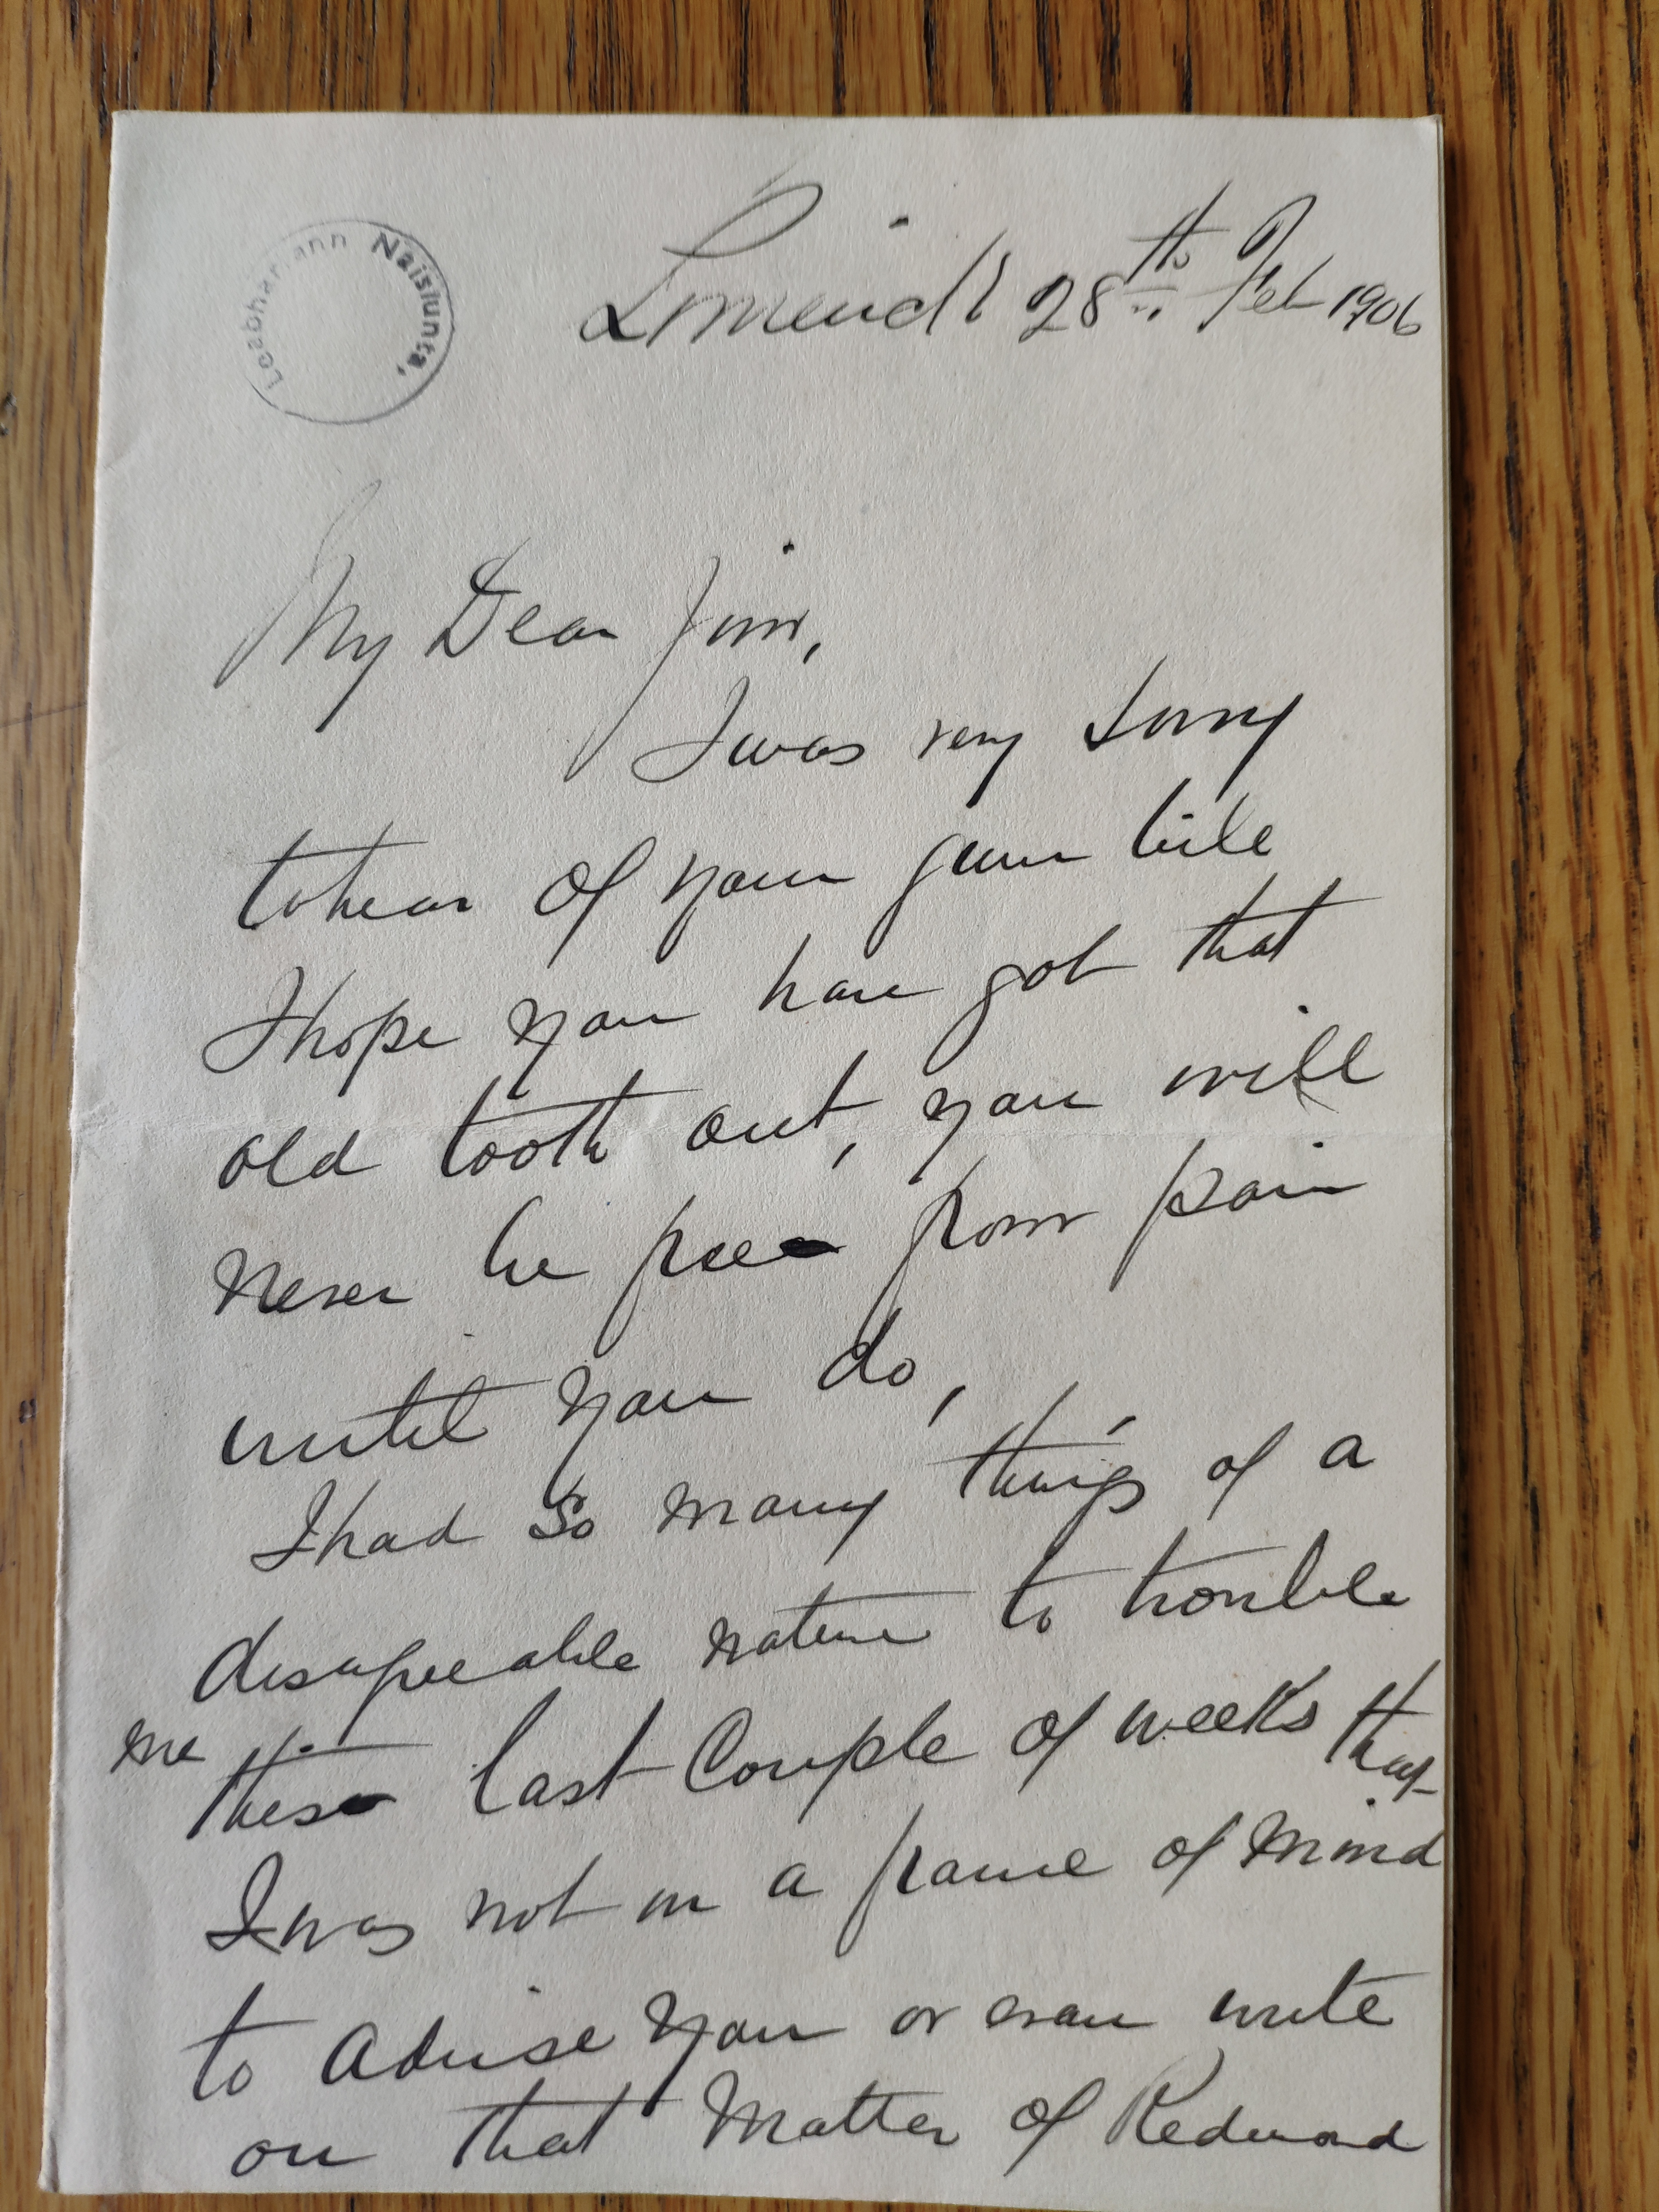 Leabharlann Náisiúnta,
Limerick 28th Feb 1906
My Dear Jim,
I was very sorry
to hear of your gum bile
I hope you have got that
old tooth out, you will
never be free from pain
until you do,
I had so many things of a
disagreeable nature to trouble
me these last Couple of weeks that
I was not in a frame of mind
to advise you or even write
on that Matter of Redmond